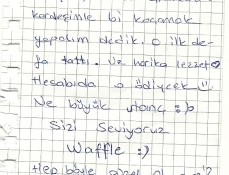 kardeşimle bi kaçamak
yapalım dedik. O ilk de-
fa tattı. Ve harika lezzet
Hesabıda o ödiycek :)
Ne büyük utanç :)
Sizi Seviyoruz
Waffle :)
Hep böyle